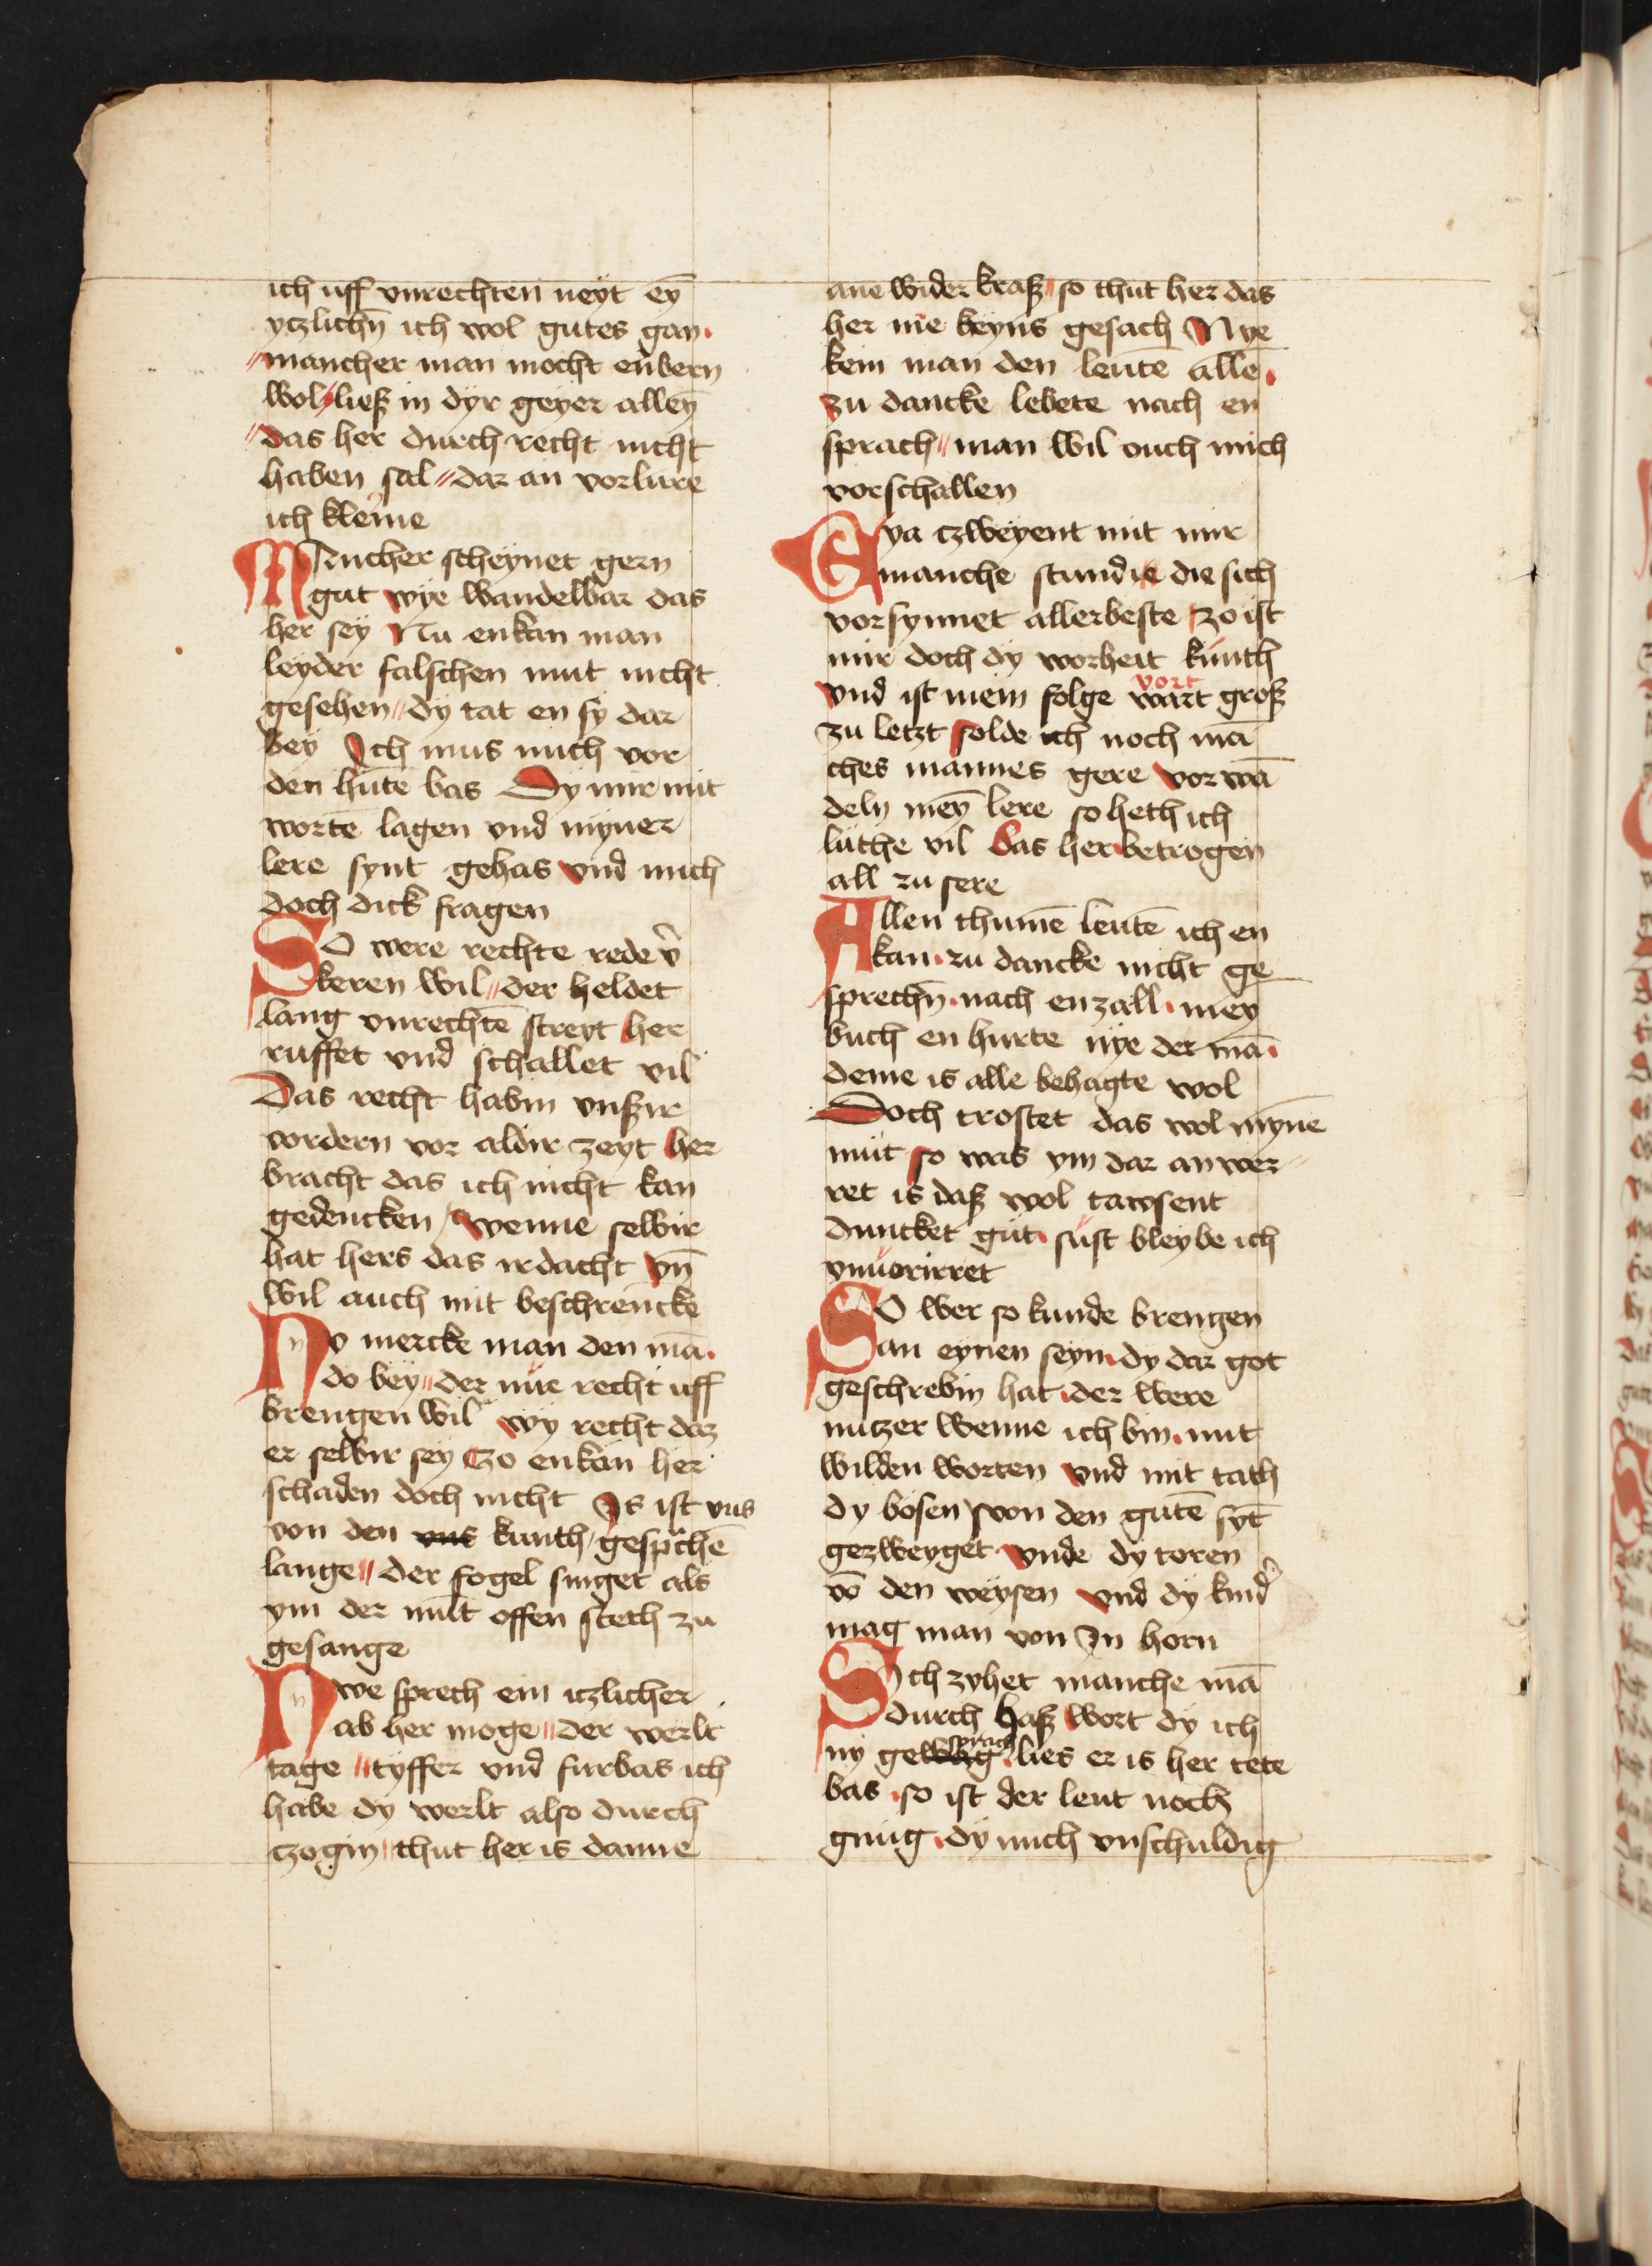 ich uff vnrechten neyt eȳ
yczlichn̄ ich wol gutes gan.
mancher man mocht enbern
wol ließ in dyr geyer alleȳ
das her durch recht nicht
haben sal dar an vorlure
ich kleine
MAncher scheynet gern
gut wye wandelbar das
her sey Nu enkan man
leyder falschen mut nicht
gesehen dy tat en sy dar
bey Ich mus mich vor
den hute bas Dy mir mit
wortē lagen vnd myner
lere synt gehas vnd mich
doch dick fragen
SO were rechte rede v̄
keren wil der heldet
lang vnrechtē streyt her
ruffet vnd schallet vil
Das recht habin vnßir
vordern vor aldir zeyt her
bracht das ich nicht kan
gedencken / wenne selbir
hat hers das irdacht vn̄
wil auch mit beschrencke
NV mercke man den mā.
do bey der nue recht uff
brengen wil wy recht daz
er selbir sey zo enkan her
schaden doch nicht Is ist vns
von den vns kunth gesprchē
lange der fogel singet als
ym der mūt offen steth zu
gesange
Nwe sprech ein iczlicher
ab her moge der werlt
tage tyffer vnd furbas ich
habe dy werlt also durch
czogin thut her is danne
ane wider kraß so thut her das
her nie keyns gesach Nye
kein man den leutē alle
zu dancke lebete nach en
sprach man wil ouch mich
vorschallen
Eya czweyent mit mir
manche stundie die sich
vorsynnet allerbeste zo ist
mir doch dy worheit kunth
vnd ist mein folge wart vort groß
zu letzt solde ich noch mā
ches mannes gere vor wā
deln meȳ lere so heth ich
luthe vil das her betrogen
all zu sere
Allen thumē leutē ich en
kan zu dancke nicht ge
sprechn̄ nach en zall mey
buch en hurte nye der mā
deme is alle behagte wol
Doch trostet das wol mynē
mut so was ym dar an wer
ret is daß wol tawsent
duncket gut sust bleybe ich
vnuorirret
SO wer so kunde brengen
an eynen seym dy dar got
geschrebin hat der were
nutzer wenne ich bin mit
wilden worten vnd mit tath
dy bosen von den gutē syt
gezweyget vnde dy toren
vō den weysen vnd dy kind̓
mag man von In horn
SIch zyhet manche mā
durch haß wort dy ich
ny gewug sprach lies er is her tete
bas so ist der leut noch
gnug dy mich vnschuldig